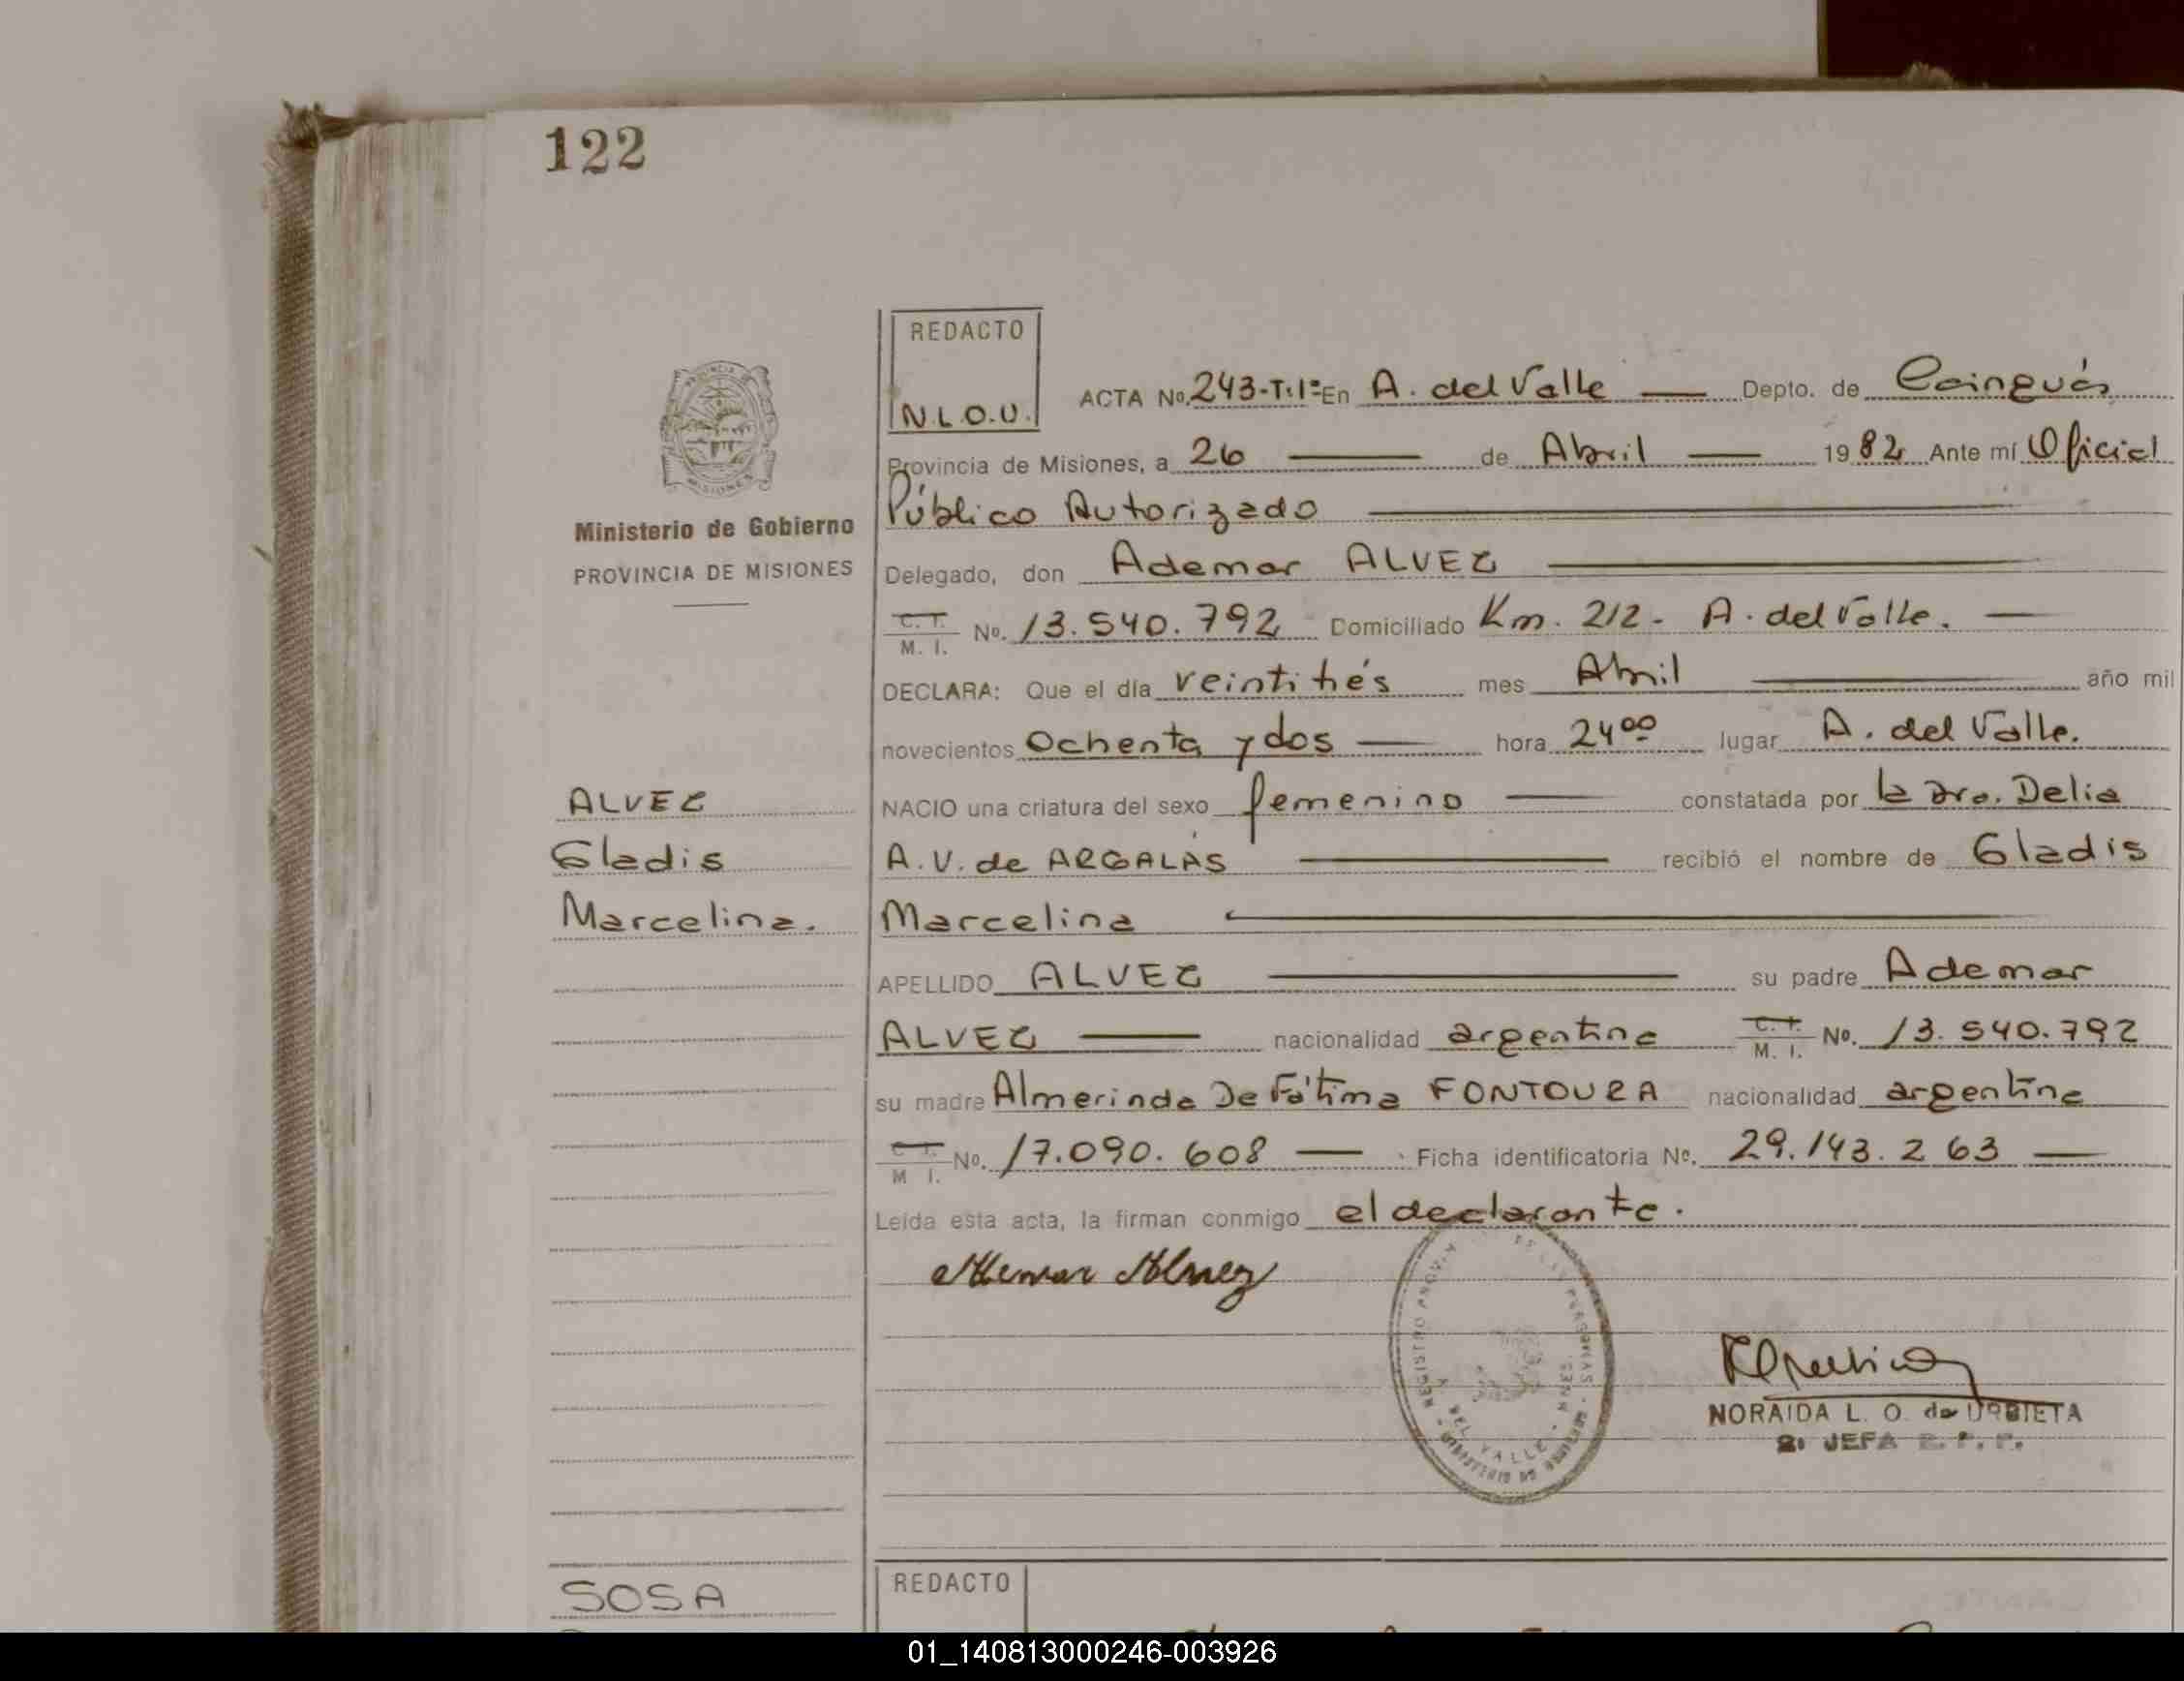 122
REDACTO
N.L.O.U.
ACTA No. 243-T.1º En A. del Valle Depto. de Cainguás
Provincia de Misiones, a 26 de Abril 1982 Ante mí Oficial
Público Autorizado
Delegado, don Ademar ALVEZ
C. I. M. I. No. 13.540.792 Domiciliado Km. 212 - A. del Valle.
DECLARA: Que el día veintitrés mes Abril año mil
novecientos Ochenta y dos hora 24 00 lugar A. del Valle.
NACIO una criatura del sexo femenino constatada por la Dra. Delia
A.V. de ARGALÁS recibió el nombre de Gladis
Marcelina
APELLIDO ALVEZ su padre Ademar
ALVEZ nacionalidad argentina C. I. M. I. No. 13.540.792
su madre Almerinda De Fátima FONTOURA nacionalidad argentina
C. I. M I. No. 17.090.608 Ficha identificatoria No. 29.143.263
Leída esta acta, la firman conmigo el declarante.
Ademar Alvez
NORAIDA L. O. de URBIETA
JEFA R. P. P.
PROVINCIA DE
MISIONES
Ministerio de Gobierno
PROVINCIA DE MISIONES
ALVEZ
Gladis
Marcelina.
DEL VALLE
SOSA
REDACTO
01_140813000246-003926